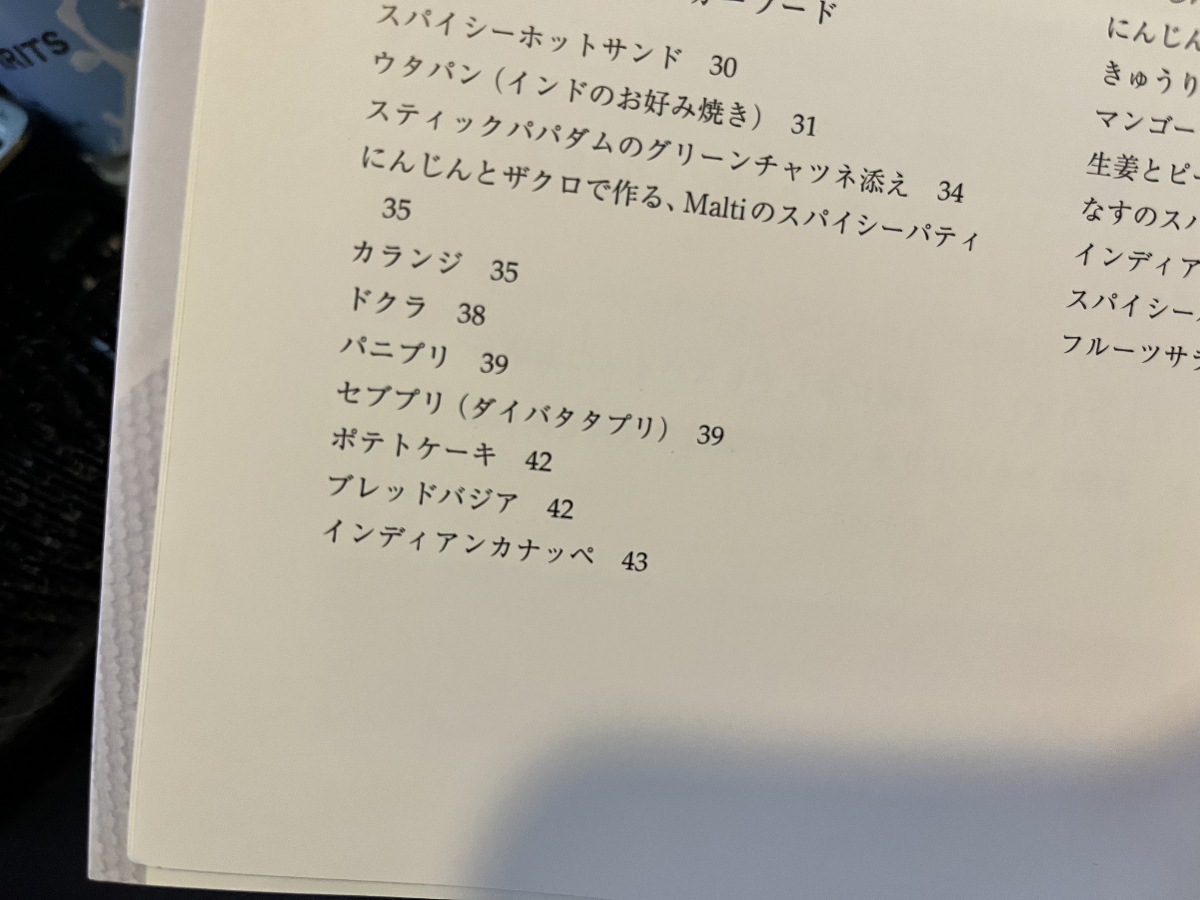 スパイシーホットサンド 30
ウタパン(インドのお好み焼き) 31
スティックパパダムのグリーンチャツネ添え 34
にんじんとザクロで作る、Maltiのスパイシーパティ
35
カランジ 35
ドクラ 38
パニプリ 39
セブプリ(ダイバタタプリ) 39
ポテトケーキ 42
ブレッドバジア 42
インディアンカナッペ 43
にんじん
きゅうり
マンゴー
生姜とピー
なすのスパ
インディア
スパイシー
フルーツサラ
RITS